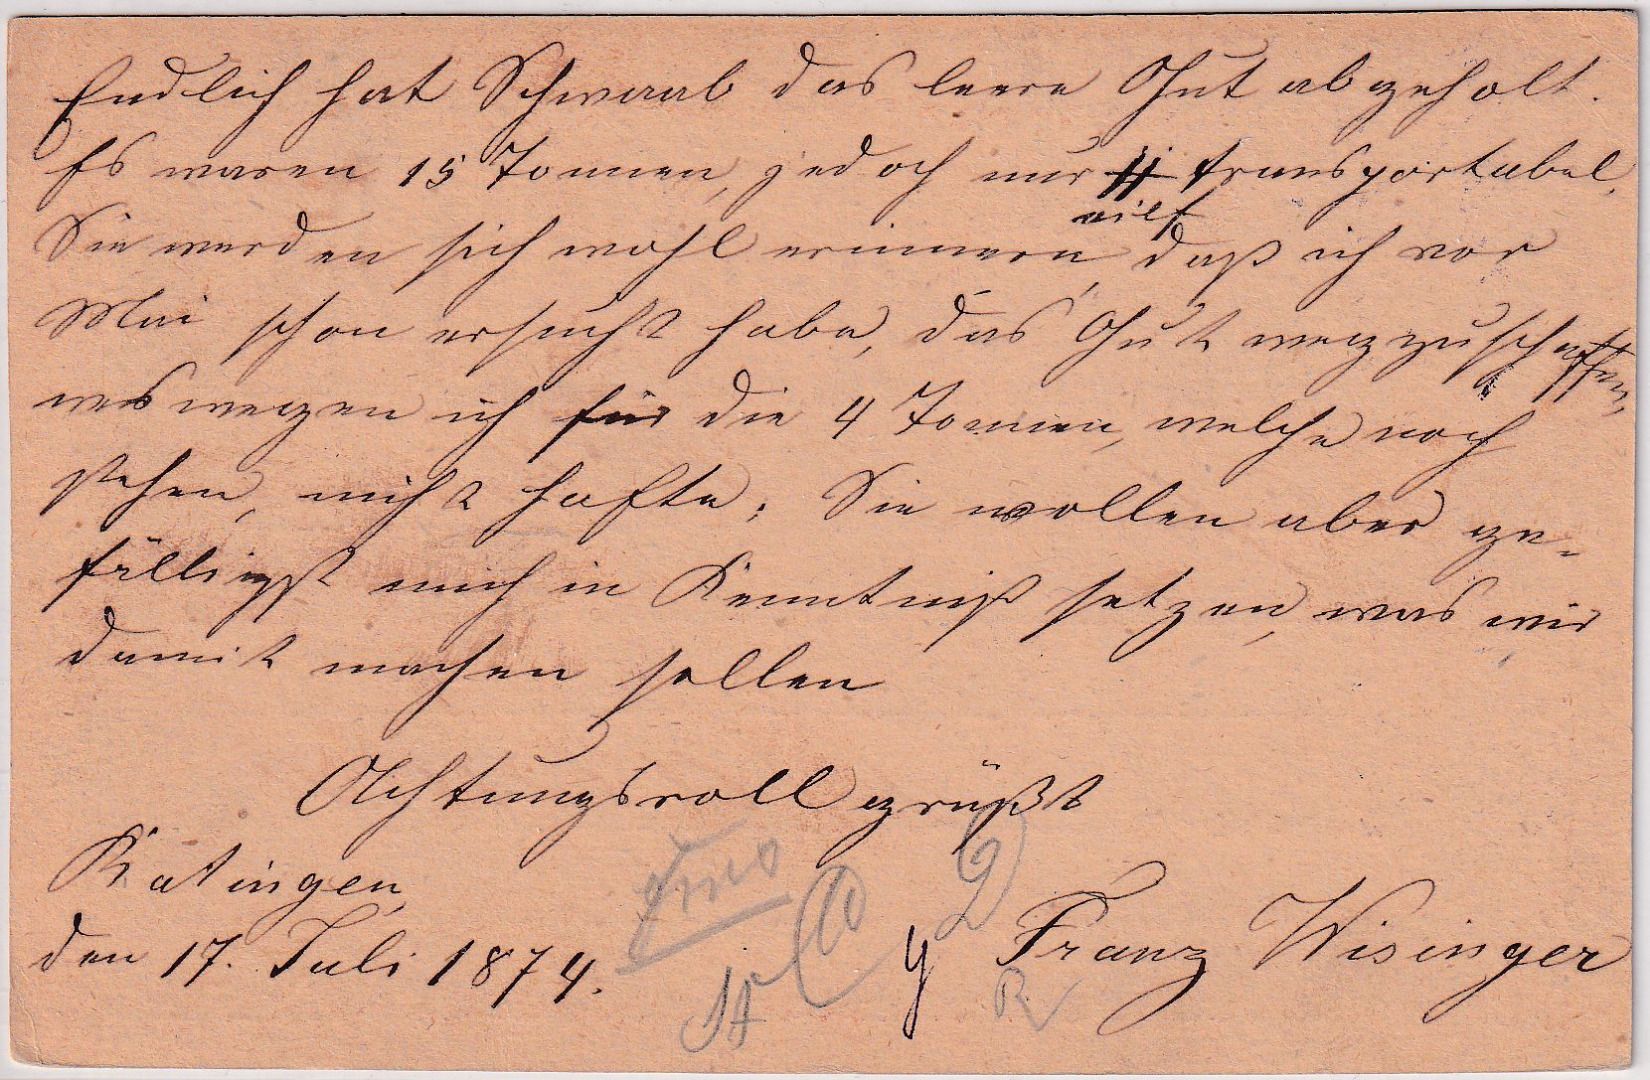 Endlich hat Schwaab das leere Gut abgeholt.
Es waren 15 Tonnen, jedoch nur 11 transportabel,
eilf
Sie werden sich wohl erinnern, daß ich vor
Mai schon ersucht habe, das Gut wegzuschaffen,
weswegen ich für die 4 Tonnen, welche noch
stehen, nicht hafte; Sie wollen aber ge-
fälligst mich in Kenntniß setzen, was wir
damit machen sollen
Achtungsvoll grüßt
Ratingen,
den 17. Juli 1874.
Franz Wisinger